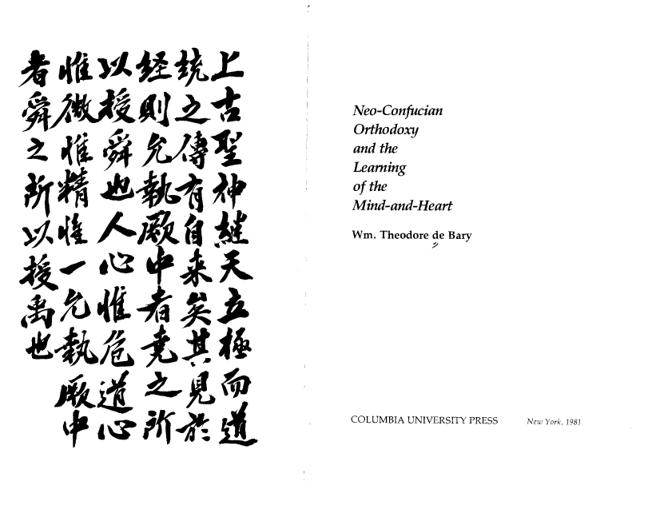 上古聖神継天立極而道
統之傳有自来矣其見於
経則允執厥中者堯之所
以授舜也人心惟危道心
惟微惟精惟一允執厥中
者舜之所以授禹也
Neo-Confucian
Orthodoxy
and the
Learning
of the
Mind-and-Heart
Wm. Theodore de Bary
COLUMBIA UNIVERSITY PRESS New York, 1981